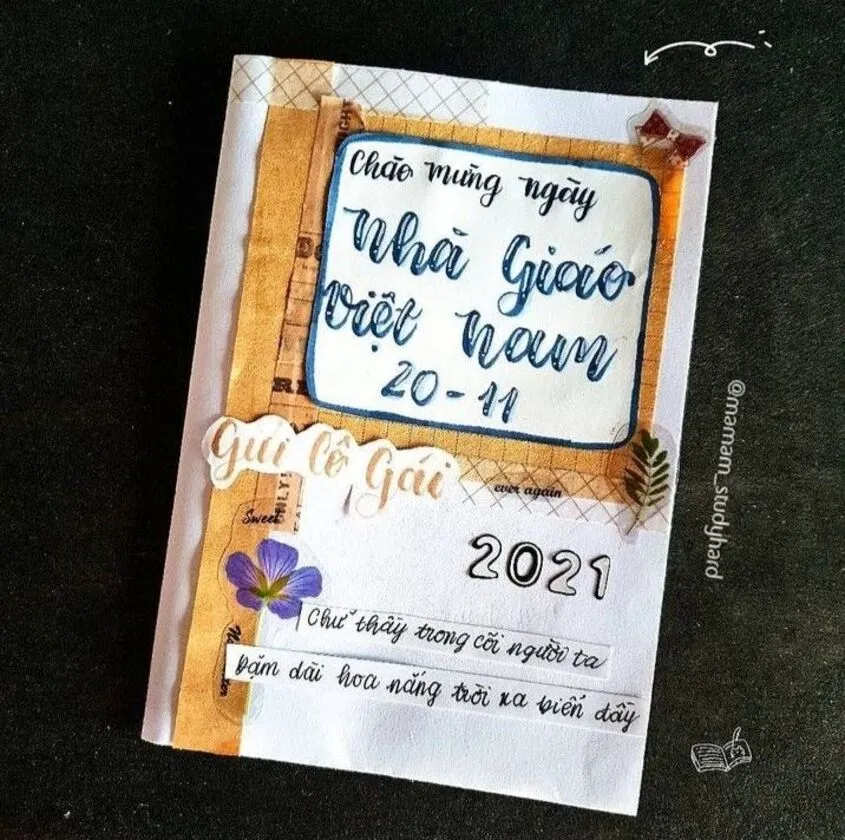 Chào mừng ngày
Nhà Giáo
Việt Nam
20-11
Gửi Cô Gái
ever again
Sweet
2021
Chữ thầy trong cõi người ta
Dặm dài hoa nắng trời xa biến đầy
@mamam_studyhard